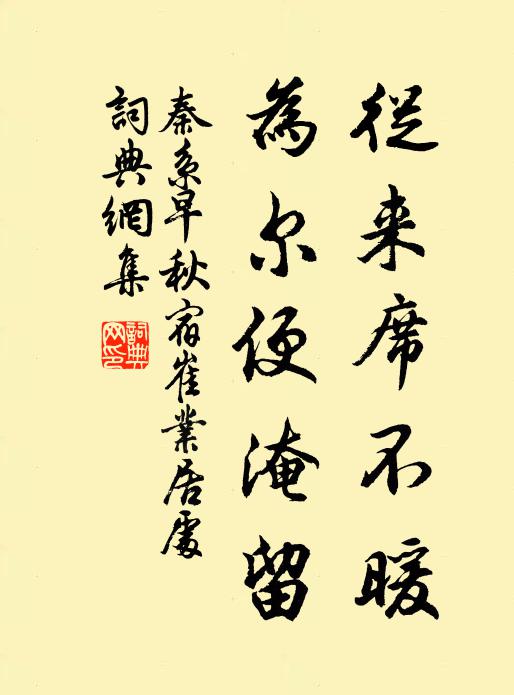 從来席不暖
為尔便淹留
秦系早秋宿崔業居處
詞典網集
詞典网印